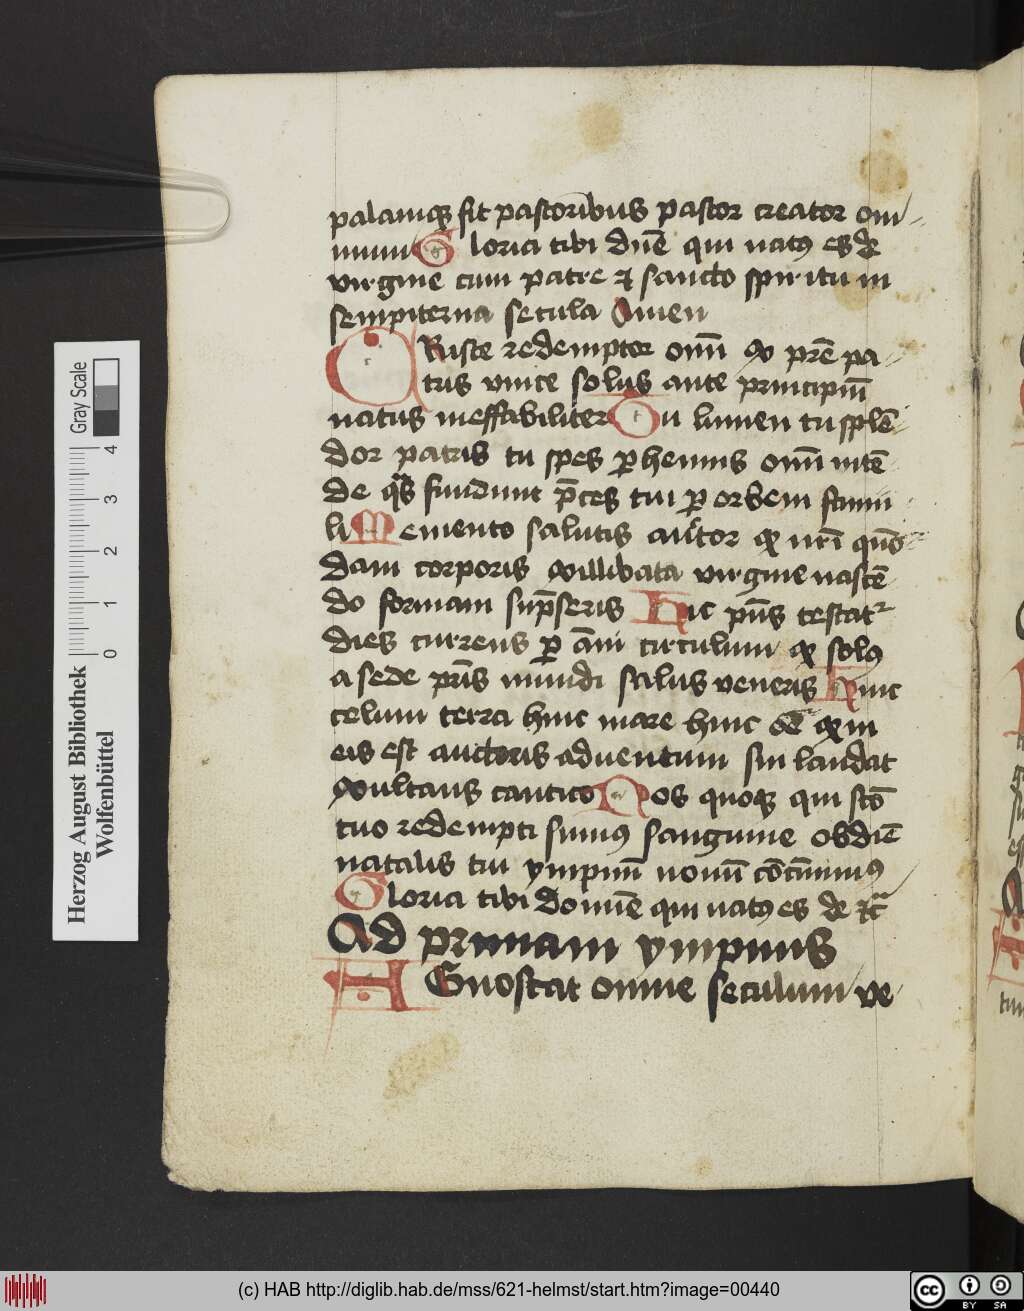 palamq̃ fit pastoribus pastor creator om
nium Gloria tibi dñe qui natꝰ es de
virgine cum patre ⁊ sancto spiritu in
sempiterna secula Amen
CRiste redemptor om̃ ex pr̃e pa
tris vnice solus ante principiũ
natus ineffabiliter Tu lumen tu splẽ
dor patris tu spes ꝑhennis om̃ intẽ
de q̃s fundunt p̃ces tui ꝑ orbem famu
li Memento salutis auctor qͥ nr̃i quõ
dam corporis exillibata virgine nascẽ
do formam sũpseris Hic pñs testatᷣ
dies currens ꝑ añi circulum qͥ solꝰ
a sede pr̃is mundi salus veneris Hunc
celum terra hunc mare hunc oẽ qͥ in
eis est auctoris aduentum sui laudat
exultans cantico Nos quoq̃ qui sctõ
tuo redempti sumꝰ sanguine ob diẽ
natalis tui ympnũ nouũ cõcinimꝰ
Gloria tibi domiẽ qui natꝰ es de ⁊c̃
Ad primam ympnus
AGnoscat omne seculum ve
Gray Scale
0 1 2 3 4
Herzog August Bibliothek
Wolfenbüttel
(c) HAB http://diglib.hab.de/mss/621-helmst/start.htm?image=00440
cc BY SA